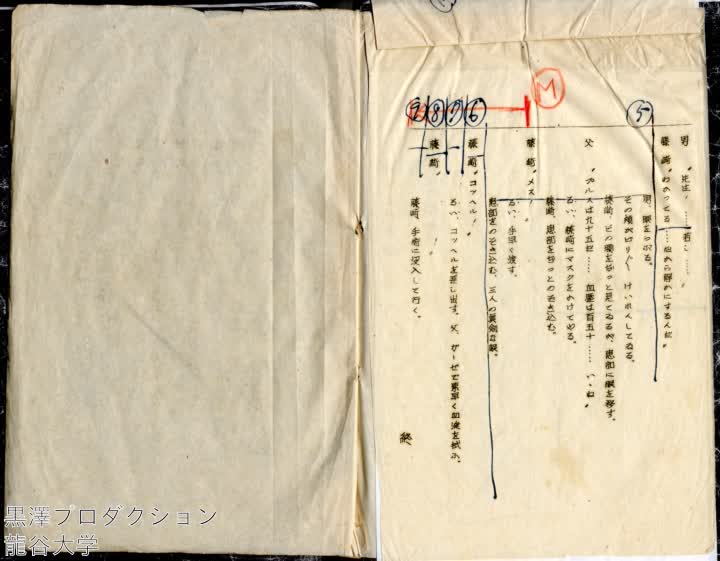 M
⑤
⑥
⑦
⑧
男 "先生! ……若し……"
藤崎 "わかつてる……だから静かにするんだ"
男、眼をつぶる。
その頬がピリ〳〵けいれんしてゐる。
藤崎、その顔をぢつと見てゐるが、患部に眼を移す。
父 "プルスは九十五……血壓は百五十……い、ね"
るい、藤崎にマスクをかけてやる。
藤崎、患部をぢつとのぞき込む。
藤崎 "メス"
るい、手早く渡す。
患部をのぞき込む、三人の真剣な眼。
藤崎 "コッヘル!"
るい、コッヘルを差し出す。父、ガーゼで素早く血液を拭ふ。
藤崎
藤崎、手術に没入して行く。
終
黒澤プロダクション
龍谷大学